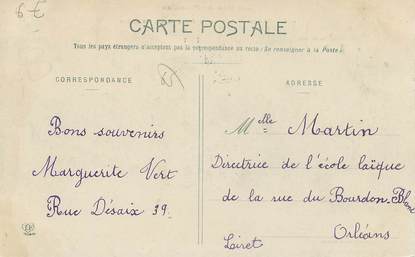 6 €
CARTE POSTALE
Tous les pays étrangers n'acceptent pas la correspondance au recto (Se renseigner à la Poste)
CORRESPONDANCE
ADRESSE
Bons souvenirs
Marguerite Vert
Rue Désaix 39.
Melle Martin
Directrice de l'école laïque
de la rue du Bourdon-Blanc
Orléans
Loiret